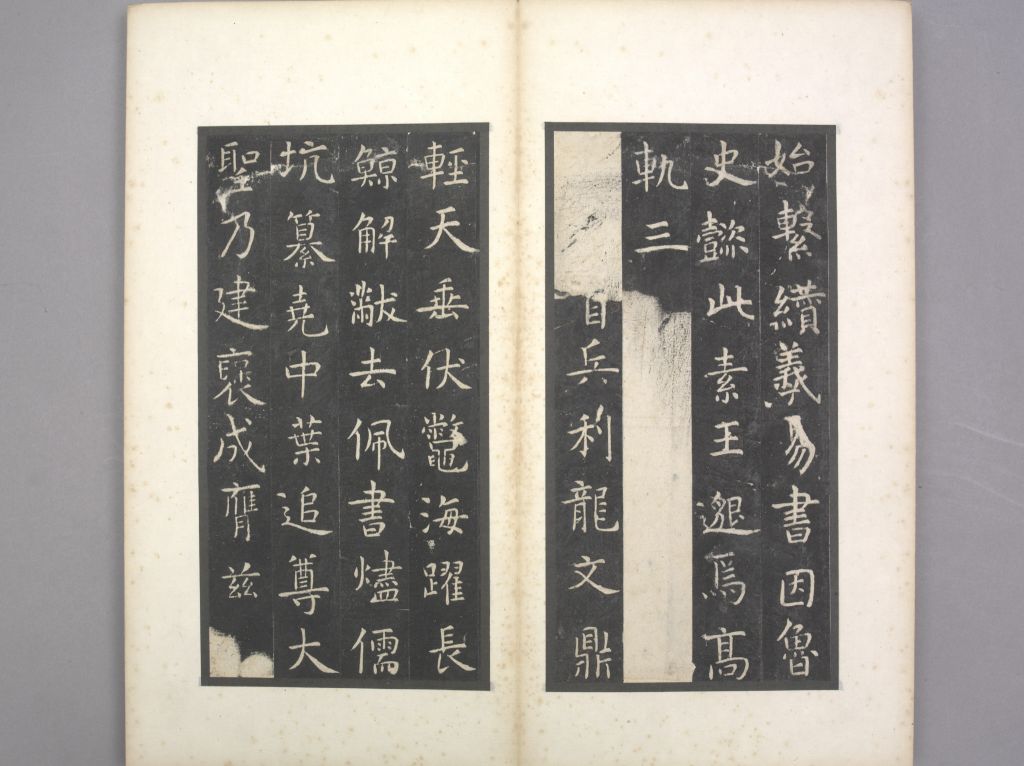 始繫纘羲易書因魯
史懿此素王邈焉高
軌三
首兵利龍文鼎
輕天垂伏鼈海躍長
鯨解黻去佩書燼儒
坑纂堯中葉追尊大
聖乃建褒成膺兹